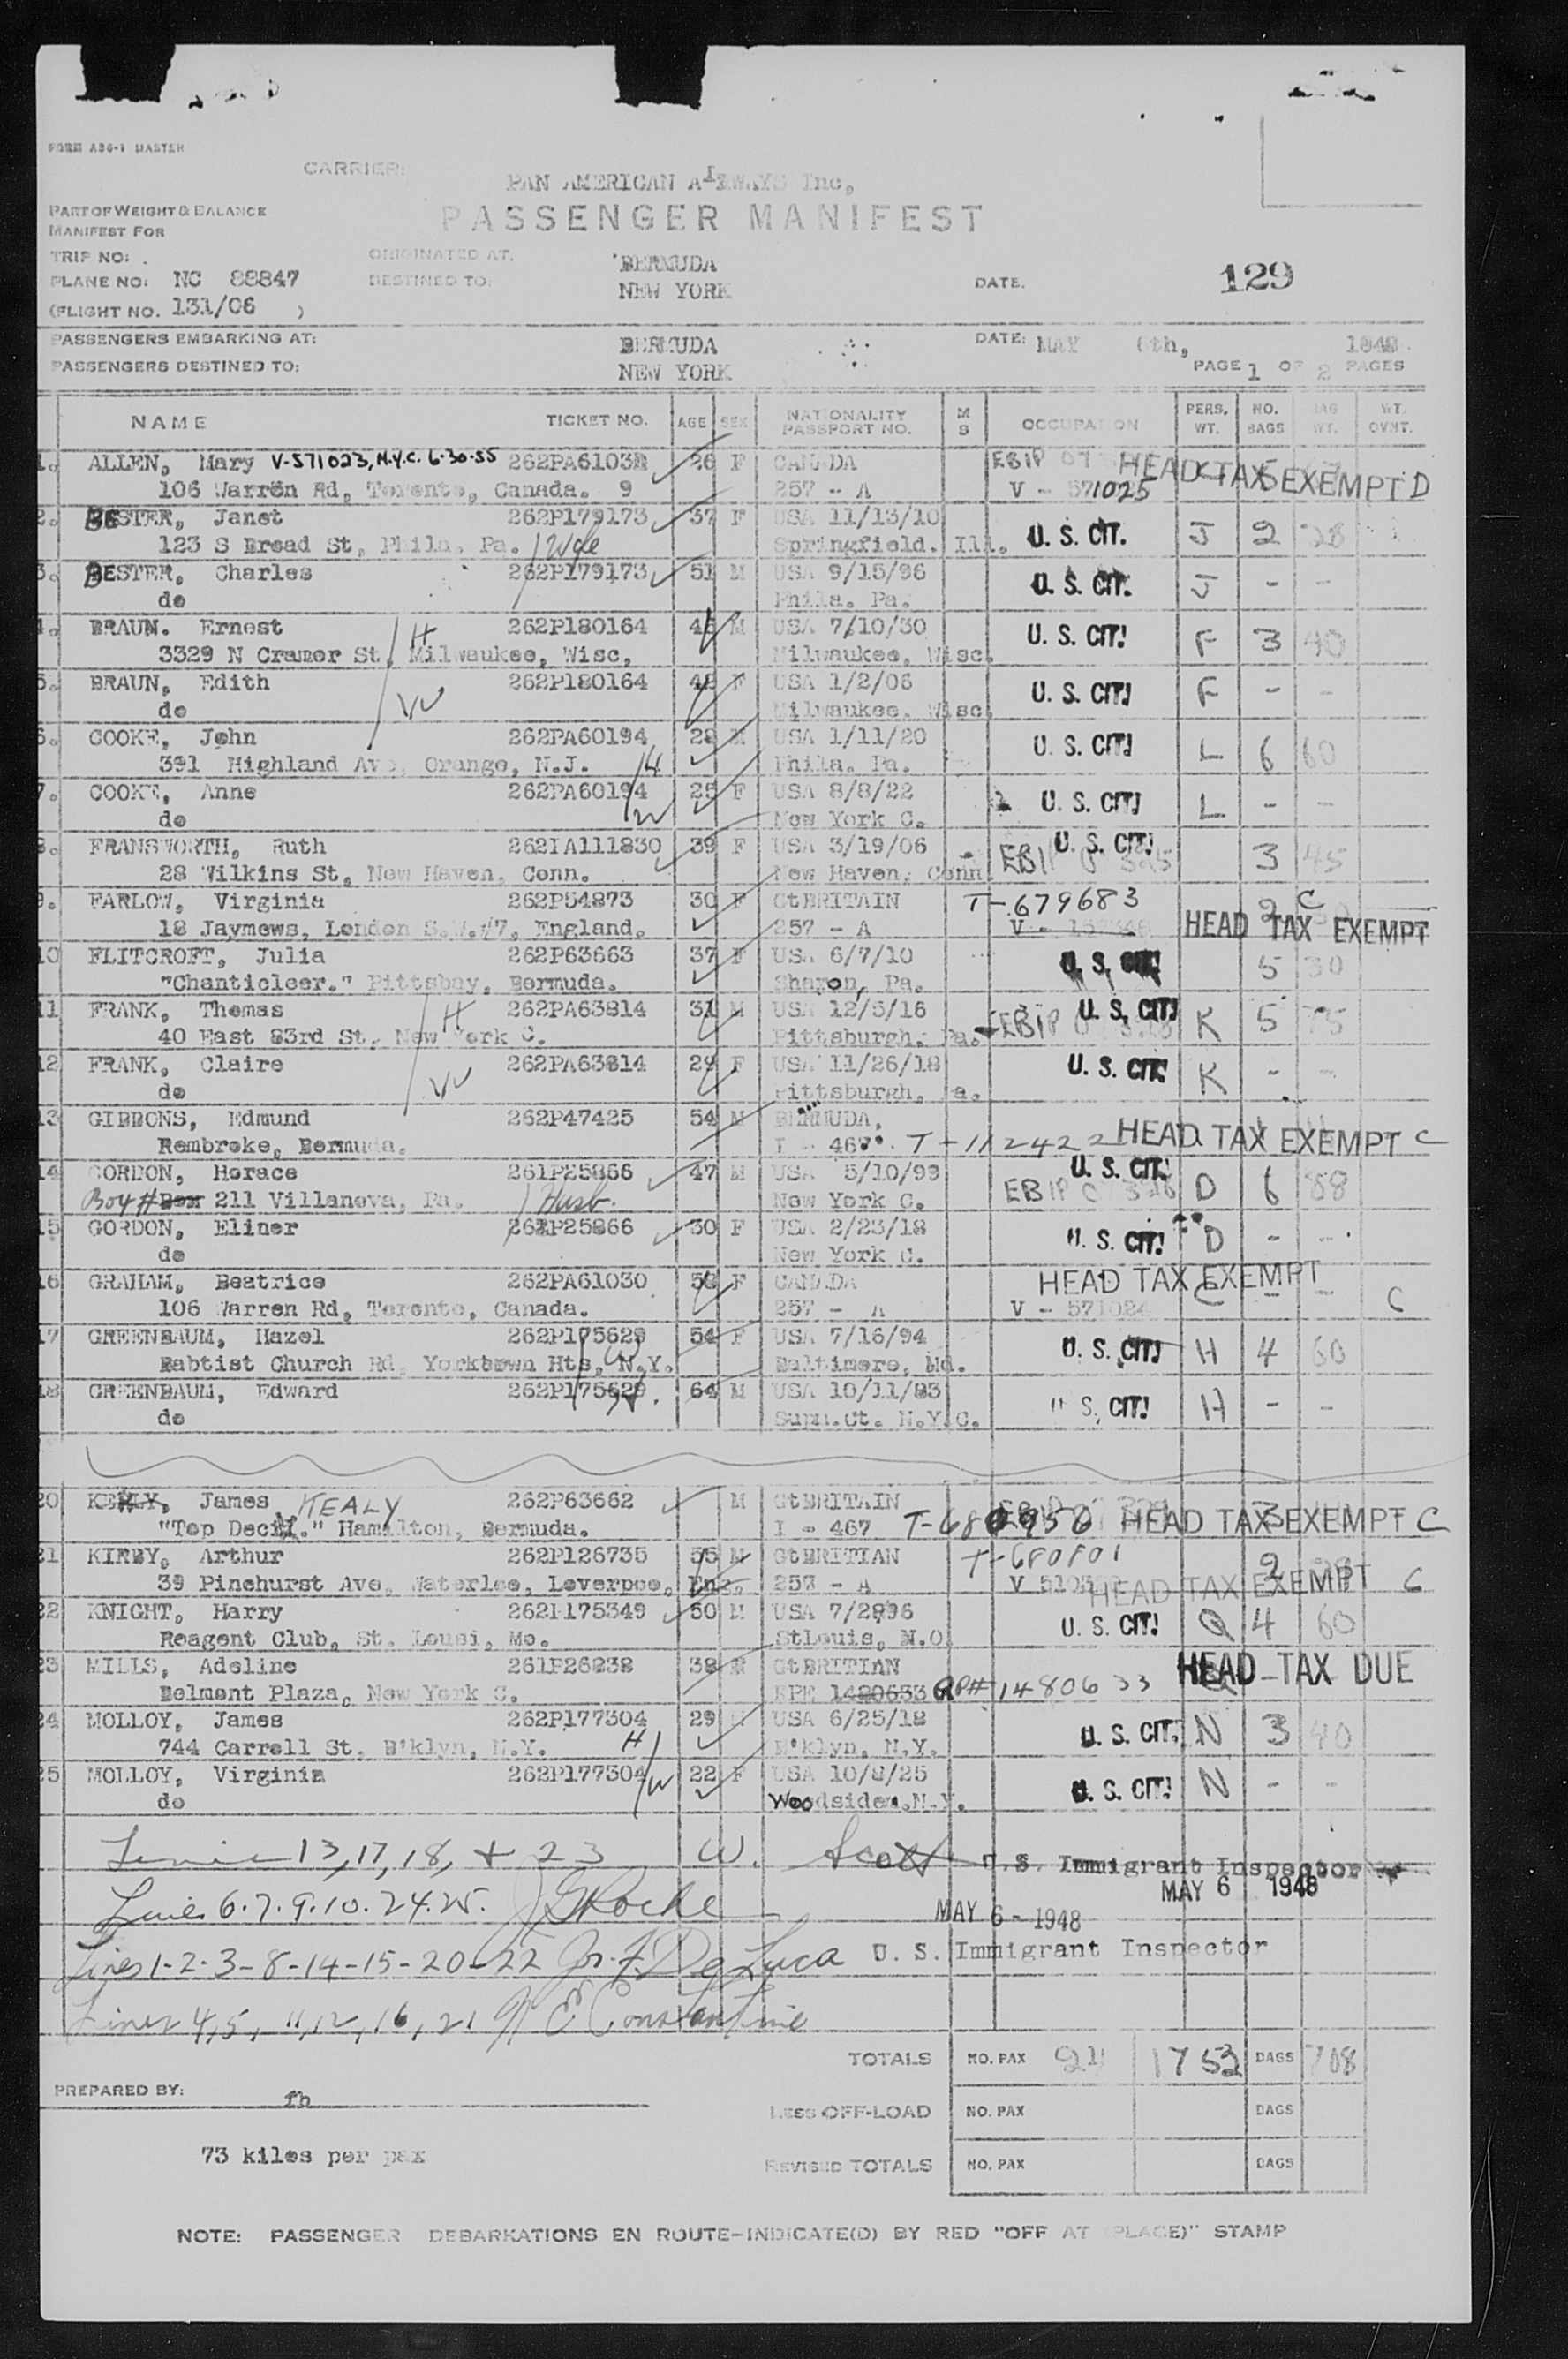 FORM A36-1 MASTER
CARRIER: PAN AMERICAN AIRWAYS Inc,
PART OF WEIGHT & BALANCE
MANIFEST FOR
PASSENGER MANIFEST
TRIP NO:
ORIGINATED AT. BERMUDA
PLANE NO: NC 88847 DESTINED TO: NEW YORK DATE. 129
(FLIGHT NO. 131/06 )
PASSENGERS EMBARKING AT: BERMUDA DATE: MAY 6th, 1948.
PASSENGERS DESTINED TO: NEW YORK PAGE 1 OF 2 PAGES
NAME TICKET NO. AGE SEX NATIONALITY PASSPORT NO. M S OCCUPATION PERS. WT. NO. BAGS BAG WT. WT. OVHT.
1. ALLEN, Mary V-571023, N.Y.C. 6-30-55 262PA6103 26 F CANADA HEAD TAX EXEMPT D
106 Warren Rd, Toronto, Canada. 9 257 - A V - 571025
2. BESTER, Janet 262P179173 37 F USA 11/13/10 U. S. CIT. J 2 28
123 S Broad St, Phila. Pa. Wife Springfield. Ill.
3. BESTER, Charles 262P179173 51 M USA 9/15/96 U. S. CIT. J - -
do Phila. Pa.
4. BRAUN. Ernest H 262P180164 M USA 7/10/30 U. S. CIT! F 3 40
3329 N Cramer St. Milwaukee, Wisc, Milwaukee, Wisc.
5. BRAUN, Edith W 262P180164 48 F USA 1/2/06 U. S. CIT! F - -
do Milwaukee, Wisc.
6. COOKE, John 262PA60194 28 M USA 1/11/20 U. S. CIT! L 6 60
391 Highland Av, Orange, N.J. H Phila. Pa.
7. COOKE, Anne 262PA60194 25 F USA 8/8/22 U. S. CIT! L - -
do W New York C.
8. FRANSWORTH, Ruth 39 F USA 3/19/06 U. S. CIT! 3 45
28 Wilkins St, New Haven, Conn. New Haven, Conn
9. FARLOW, Virginia 262P54873 30 F GtBRITAIN T-679683 2 C
18 Jaymews, London England. 257 - A HEAD TAX EXEMPT
10 FLITCROFT, Julia 262P63663 37 F USA 6/7/10 U. S. CIT! 5 30
"Chanticleer." Pittsbay, Bermuda. Sharon, Pa.
11 FRANK, Thomas H 262PA63814 31 M USA 12/5/16 U. S. CIT! K 5 75
40 East 83rd St, New York C. Pittsburgh. Pa.
12 FRANK, Claire W 262PA63814 29 F USA 11/26/18 U. S. CIT! K - -
do Pittsburgh, Pa.
13 GIBBONS, Edmund 262P47425 54 M BERMUDA,
Pembroke, Bermuda. I - 467 T-112422 HEAD TAX EXEMPT C
14 GORDON, Horace 261P25866 47 M USA 5/10/99 U. S. CIT! D 6 88
Box 211 Villanova, Pa. Husb. New York C.
15 GORDON, Eliner 261P25866 30 F USA 2/23/18 U. S. CIT! D - -
do New York C.
16 GRAHAM, Beatrice 262PA61030 F CANADA HEAD TAX EXEMPT
106 Warren Rd, Toronto, Canada. 257 - A V - 571024 C
17 GREENBAUM, Hazel 262P175629 54 F USA 7/16/94 U. S. CIT! H 4 60
Babtist Church Rd, Yorktown Hts, N.Y. W Baltimore, Md.
18 GREENBAUM, Edward 262P175629 64 M USA 10/11/83 U. S. CIT! H - -
do Supm.Ct. N.Y.C.
20 KEALY, James KEALY 262P63662 M GtBRITAIN 3
"Top Deck." Hamilton, Bermuda. I - 467 HEAD TAX EXEMPT C
21 KIRBY, Arthur 262P126735 55 M GtBRITIAN T-680801 2
39 Pinehurst Ave, Waterloo, Leverpoo, Eng. 257 - A HEAD TAX EXEMPT C
22 KNIGHT, Harry 262P175349 50 M USA 7/2896 U. S. CIT! Q 4 60
Reagent Club, St. Lousi, Mo. StLouis, M.O.
23 MILLS, Adeline 261P26838 38 GtBRITIAN HEAD TAX DUE
Belmont Plaza, New York C. RPE 1480633 RP# 1480633
24 MOLLOY, James 262P177304 29 USA 6/25/18 U. S. CIT. N 3 40
744 Carroll St. B'klyn, N.Y. H B'klyn, N.Y.
25 MOLLOY, Virginia 262P177304 22 F USA 10/8/25 U. S. CIT! N - -
do W Woodside, N.Y.
Lines 13, 17, 18, + 23 W. Scott U.S. Immigrant Inspector
MAY 6 1948
Lines 6.7.9.10.24.25. J G Roche MAY 6 - 1948
Lines 1-2-3-8-14-15-20-22 Jos. F. De Luca U. S. Immigrant Inspector
Lines 4, 5, 11, 12, 16, 21 E Constantine
TOTALS NO. PAX 24 1752 BAGS 708
PREPARED BY: fh
LESS OFF-LOAD NO. PAX BAGS
73 kilos per pax
REVISED TOTALS NO. PAX BAGS
NOTE: PASSENGER DEBARKATIONS EN ROUTE-INDICATE(D) BY RED "OFF AT (PLACE)" STAMP